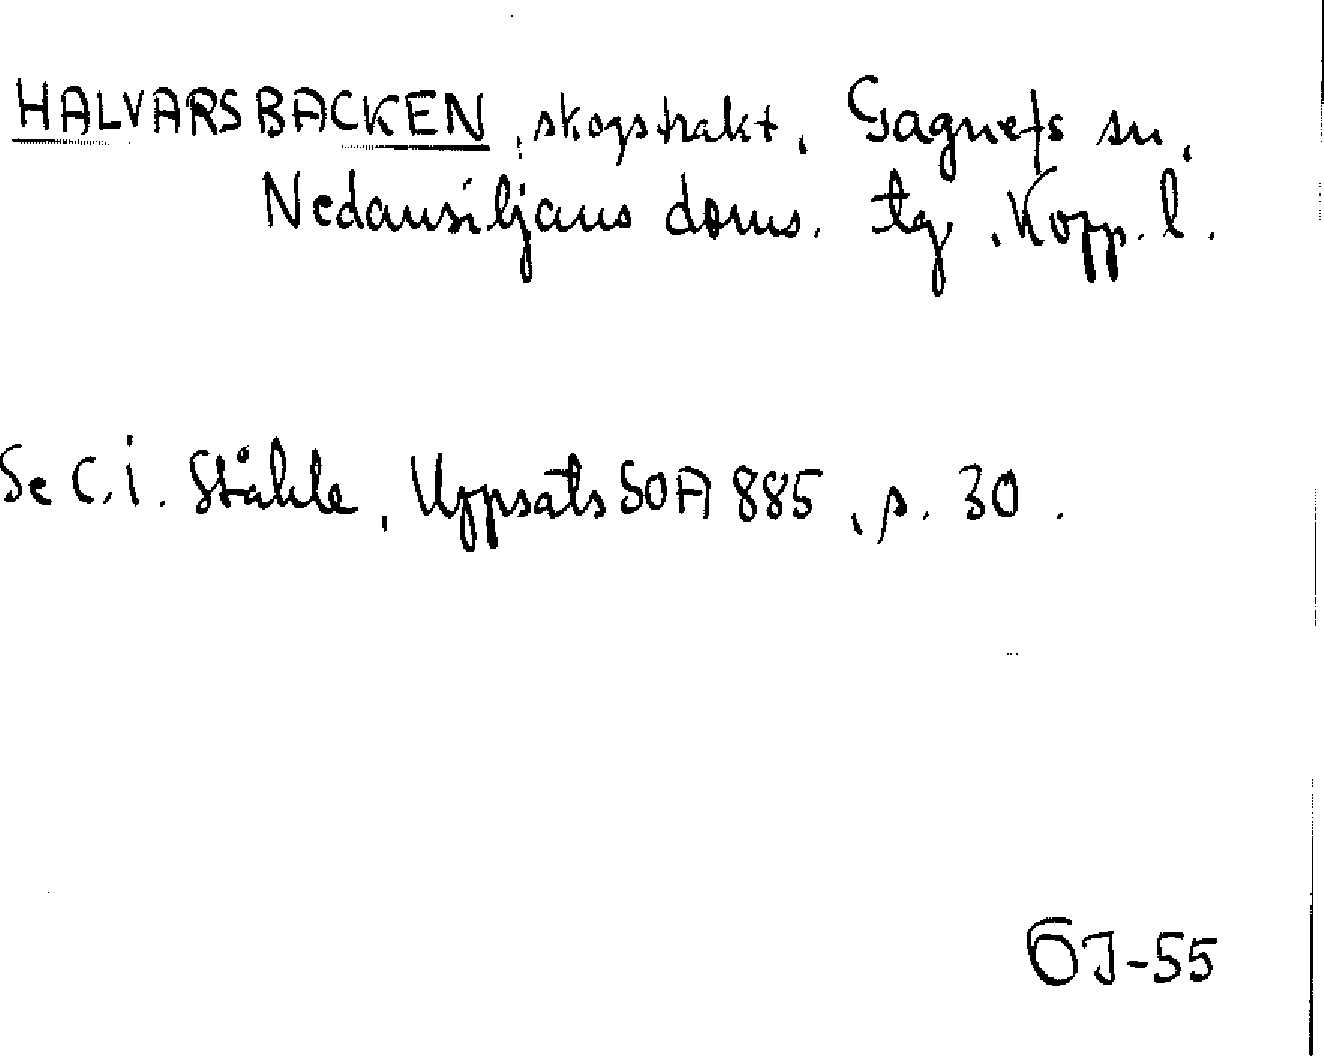 HALVARSBACKEN, skogstrakt, Gagnefs sn,
Nedansiljans doms. tg, Kopp. l.
Se C.I. Ståhle, Uppsats SOA 885, s. 30.
GJ-55